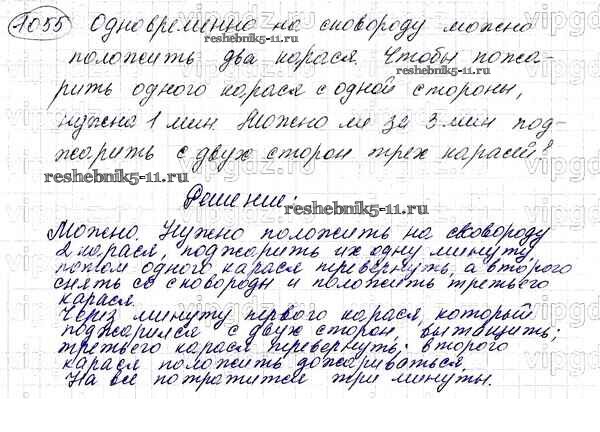 1055 Одновременно на сковороду можно
положить два карася. Чтобы пожа-
рить одного карася с одной стороны,
нужна 1 мин. Можно ли за 3 мин под-
жарить с двух сторон трех карасей?
Решение:
Можно. Нужно положить на сковороду
2 карася, поджарить их одну минуту,
потом одного карася перевернуть, а второго
снять со сковороды и положить третьего
карася.
Через минуту первого карася, который
поджарился с двух сторон, вытащить;
третьего карася перевернуть; второго
карася положить дожариваться.
На всё потратится три минуты.
reshebnik5-11.ru
reshebnik5-11.ru
reshebnik5-11.ru
reshebnik5-11.ru
reshebnik5-11.ru